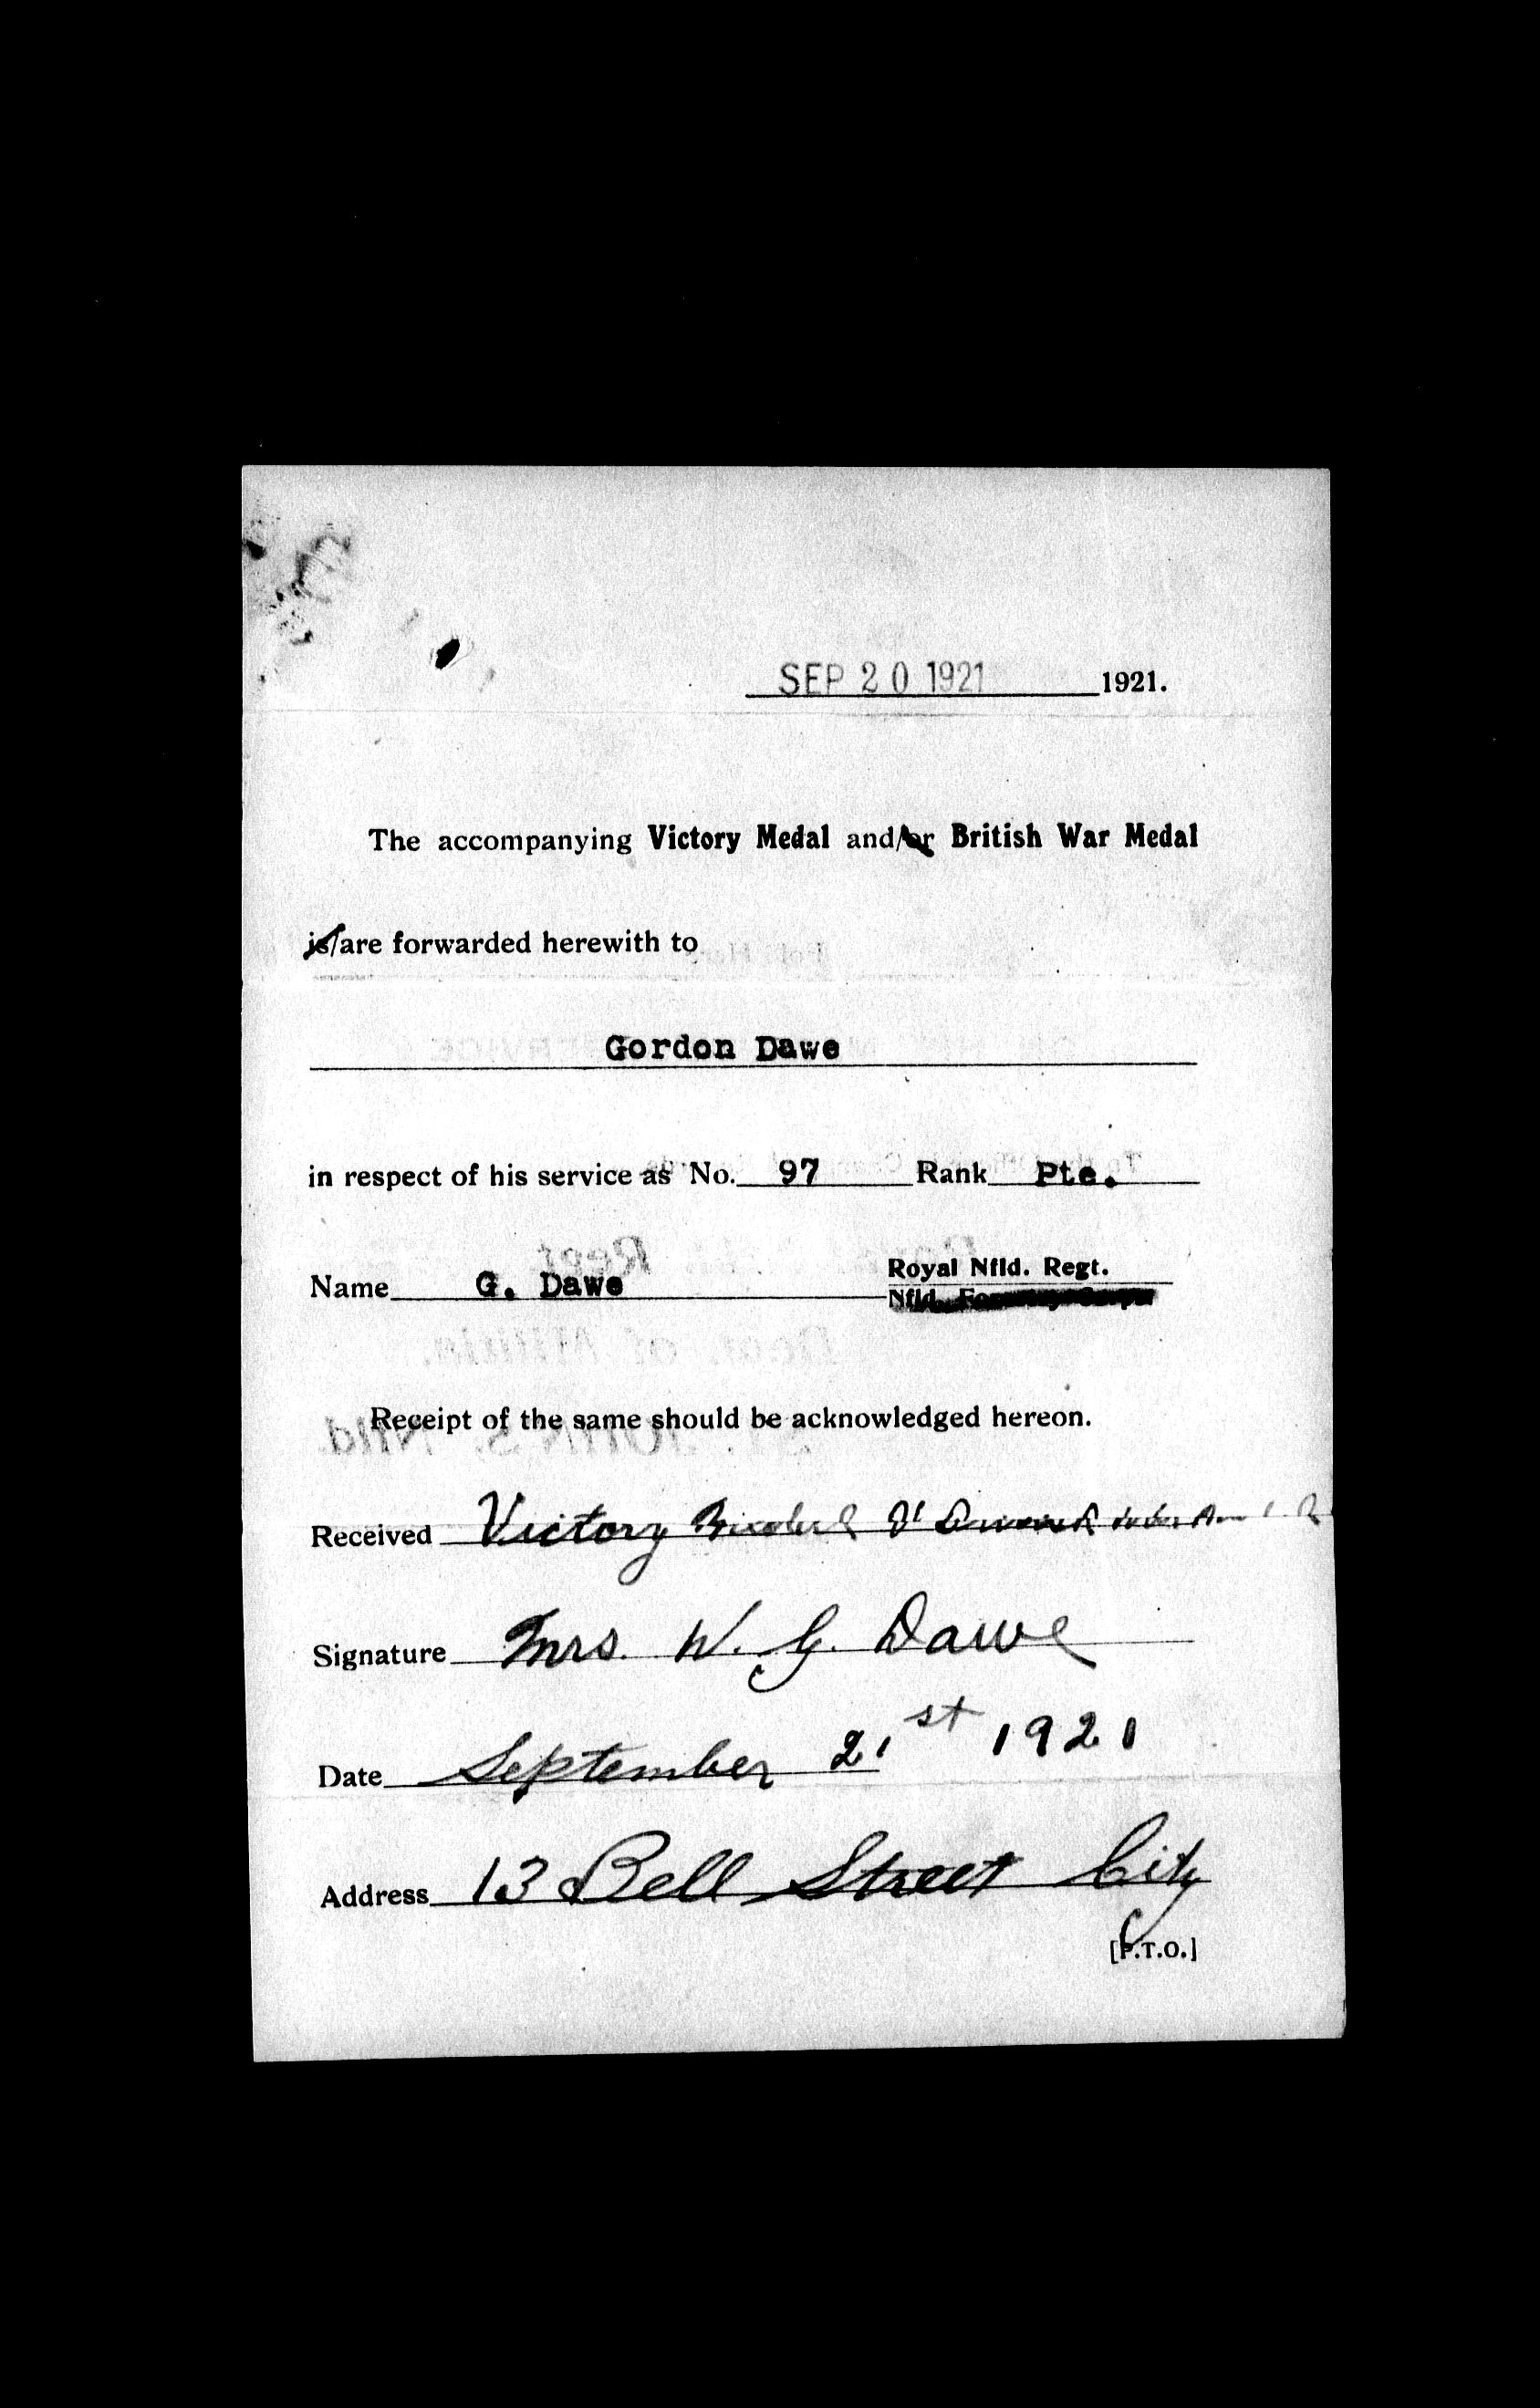 SEP 20 1921 1921.
The accompanying Victory Medal and/or British War Medal
is/are forwarded herewith to
Gordon Dawe
in respect of his service as No. 97 Rank Pte.
Name G. Dawe Royal Nfld. Regt.
Nfld.
Receipt of the same should be acknowledged hereon.
Received Victory
Signature Mrs. W. G. Dawe
Date September 21st 1921
Address 13 Bell Street City
[P.T.O.]